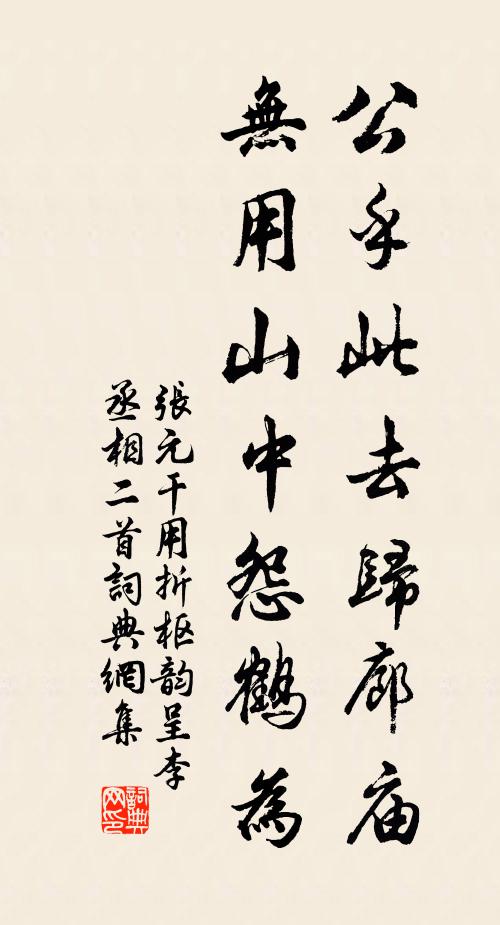 公乎此去歸廊庙
無用山中怨鶴為
張元干用折枢韵呈李
丞相二首詞典網集
詞典
网印